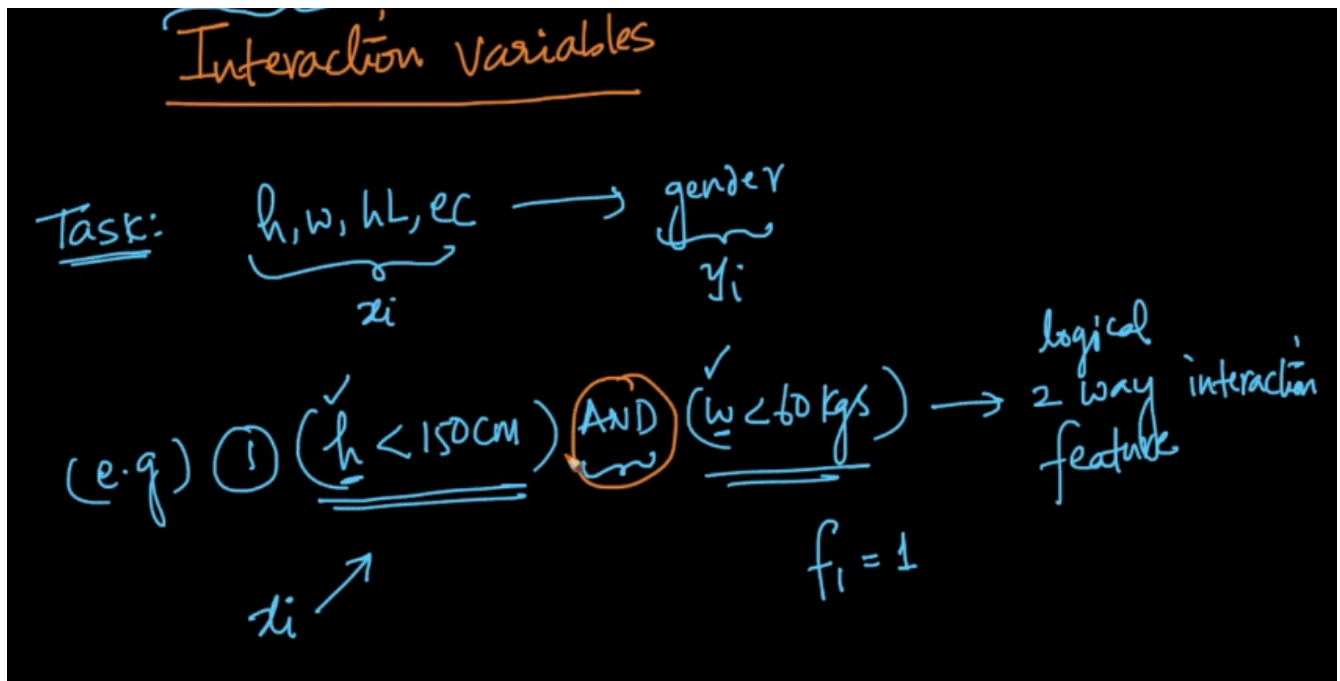 Interaction variables
Task: h, w, hL, ec → gender
xi yi
(e.g) ① (h < 150cm) AND (w < 60 kgs) → logical
2 way interaction
feature
f1 = 1
xi